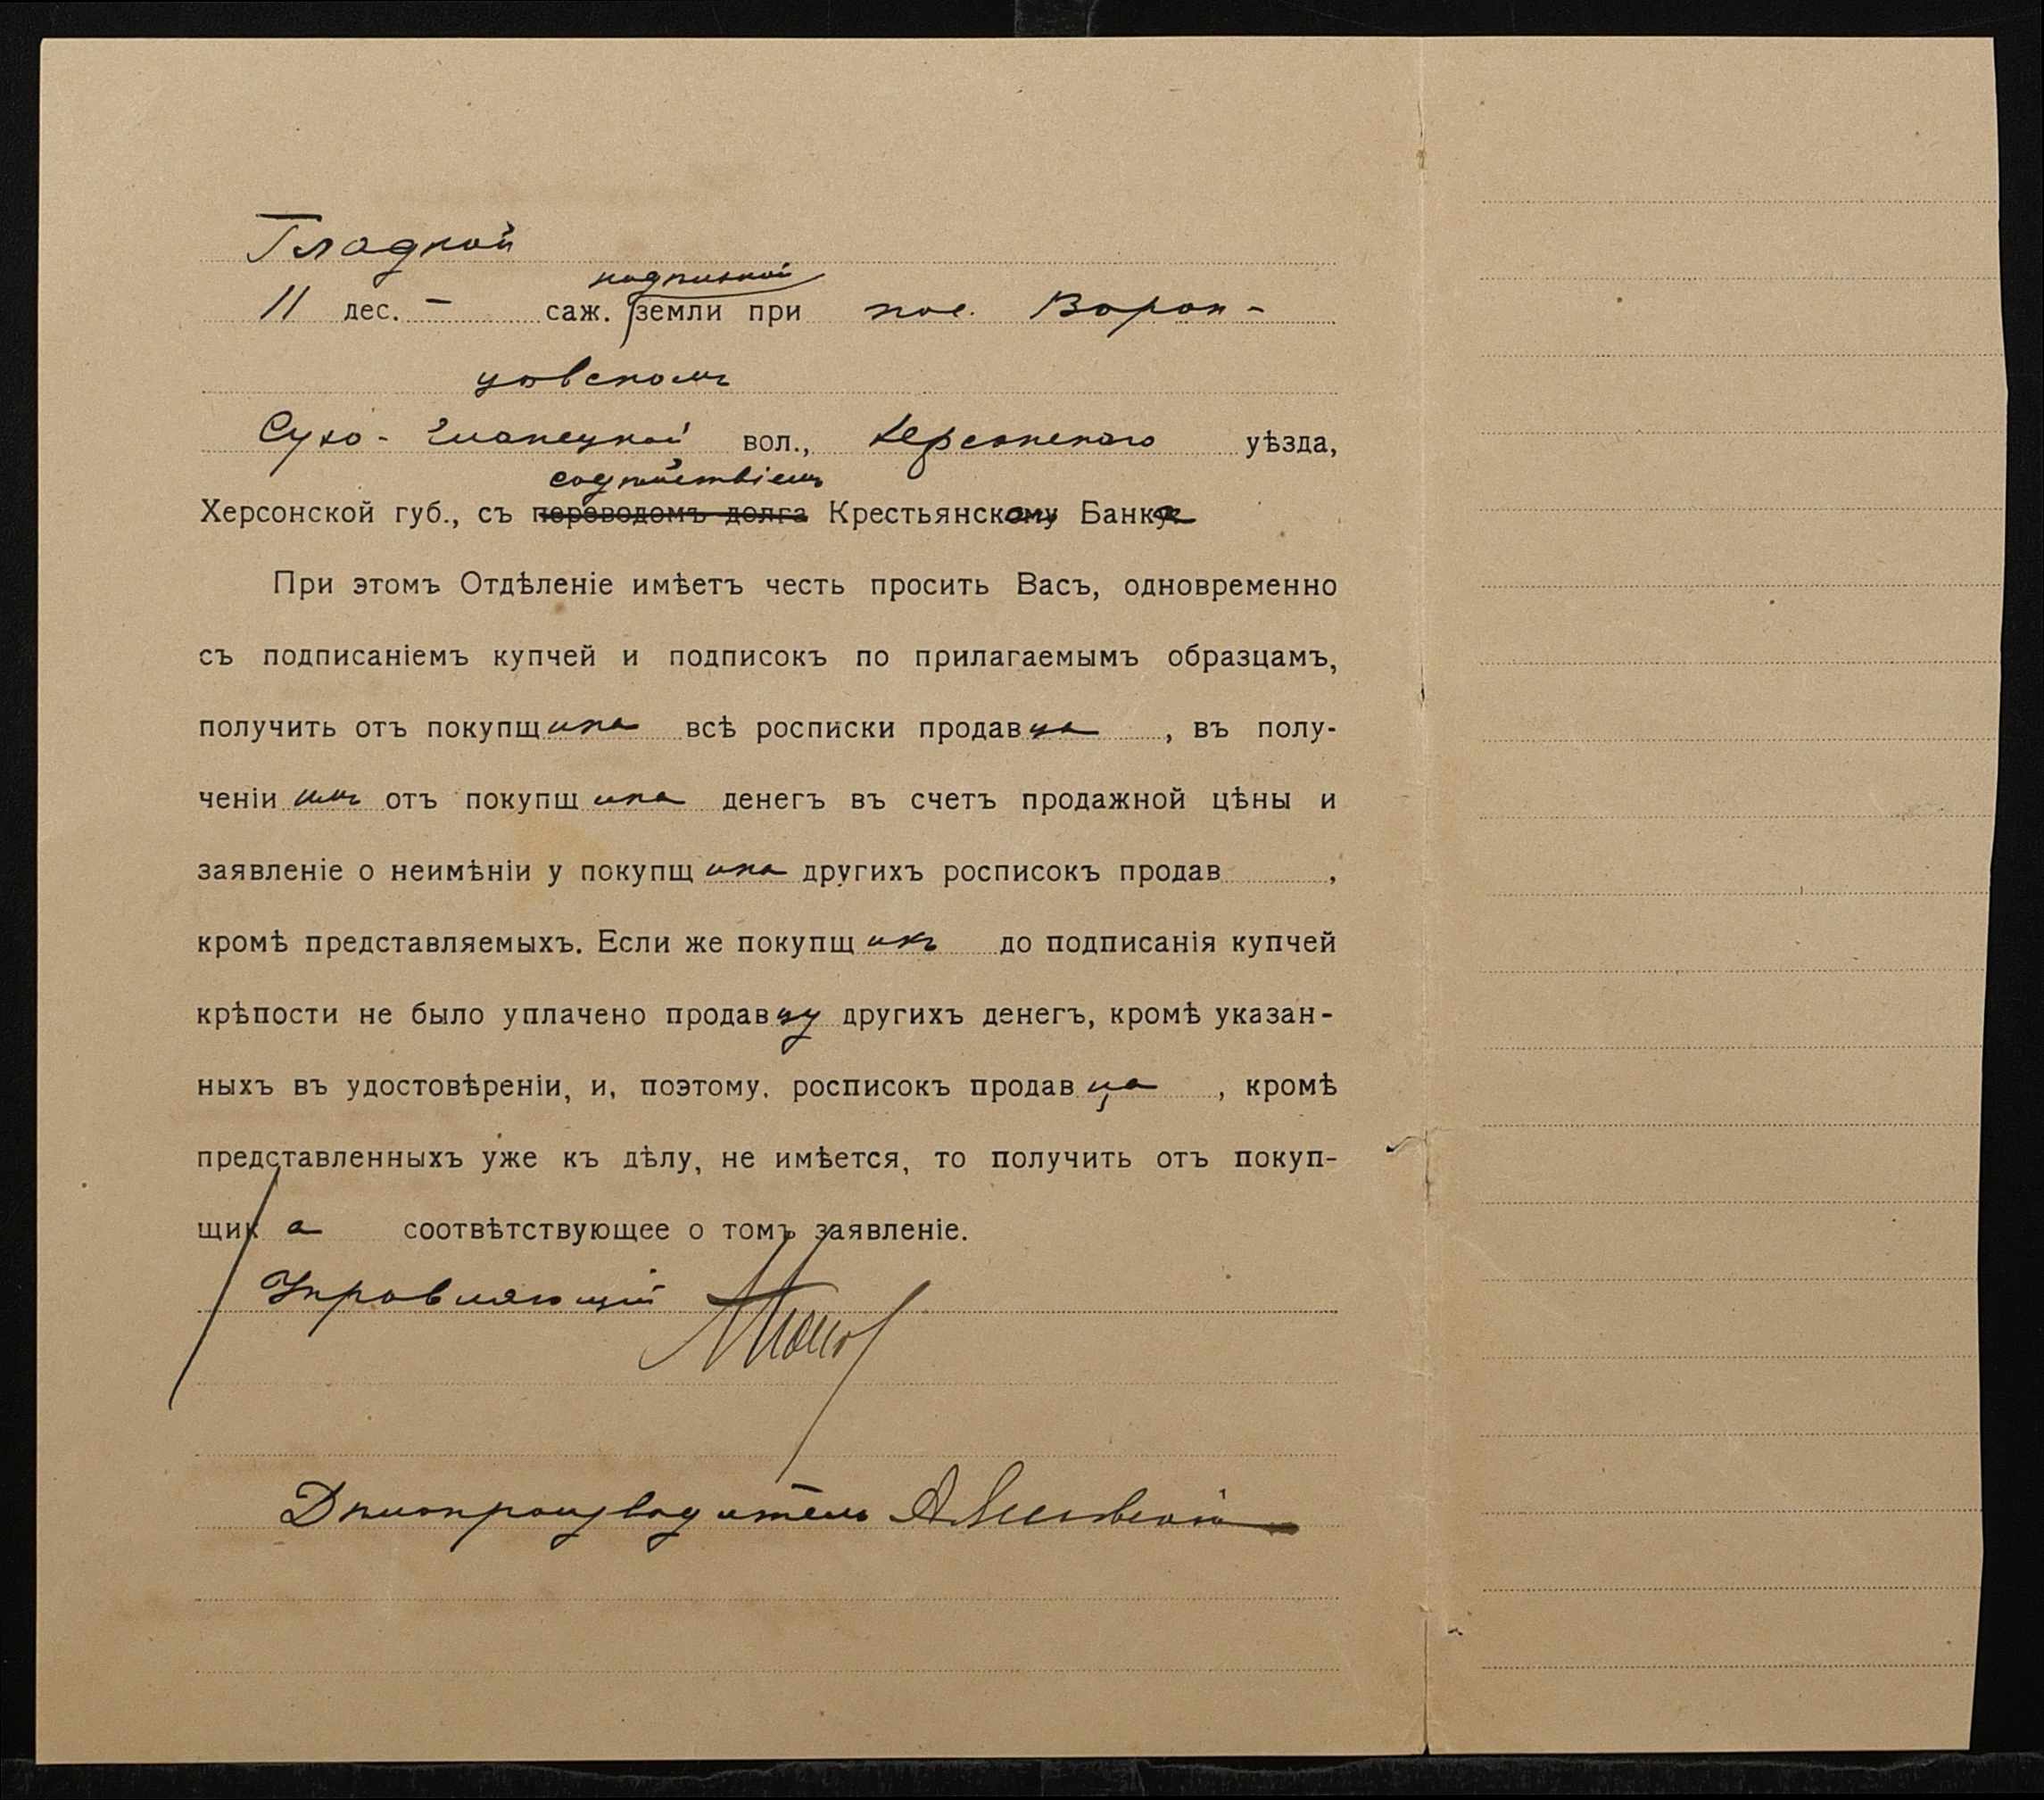 Гладкой
надѣльной
11 дес. – саж. земли при пос. Ворон-
цовскомъ
Сухо-Еланецкой вол., Херсонскаго уѣзда,
содѣйствіемъ
Херсонской губ., съ переводомъ долга Крестьянскому Банка
При этомъ Отдѣленіе имѣетъ честь просить Васъ, одновременно
съ подписаніемъ купчей и подписокъ по прилагаемымъ образцамъ,
получить отъ покупщика всѣ росписки продавца, въ полу-
ченіи имъ отъ покупщика денегъ въ счетъ продажной цѣны и
заявленіе о неимѣніи у покупщика другихъ росписокъ продав ,
кромѣ представляемыхъ. Если же покупщикъ до подписанія купчей
крѣпости не было уплачено продавцу другихъ денегъ, кромѣ указан-
ныхъ въ удостовѣреніи, и, поэтому, росписокъ продавца, кромѣ
представленныхъ уже къ дѣлу, не имѣется, то получить отъ покуп-
щика соотвѣтствующее о томъ заявленіе.
Управляющій
Дѣлопроизводитель